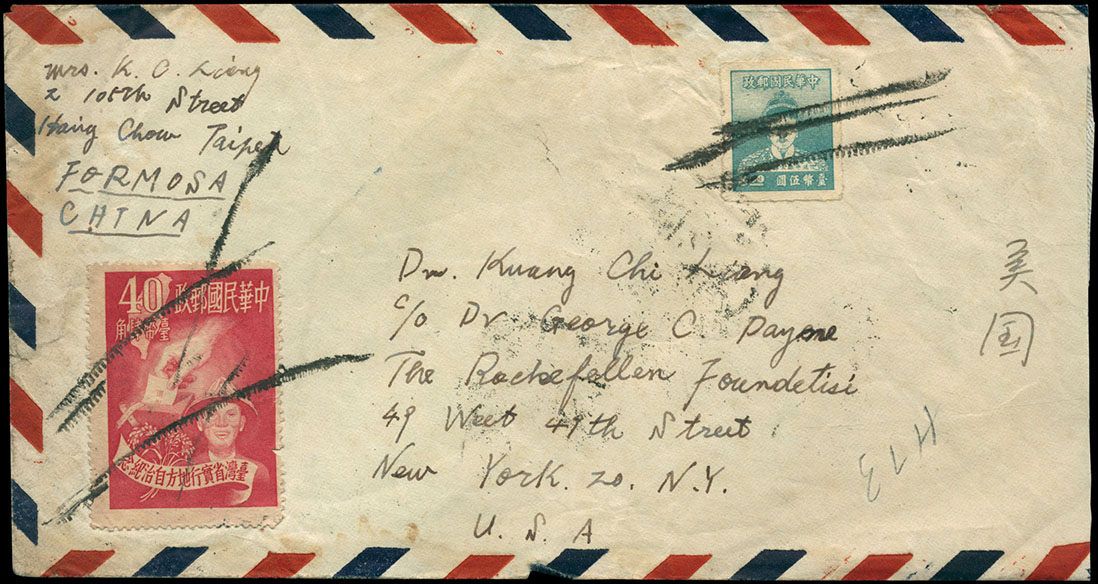 Mrs. K. C. Liang
2 105th Street
Hang Chow Taipeh
FORMOSA
CHINA
中華民國郵政
臺幣伍圓
Dr. Kuang Chi Liang
c/o Dr George C. Payne
The Rockefeller Foundetisi
49 West 49th Street
New York. 20. N.Y.
U. S. A
美
国
40
政郵國民華中
臺幣肆角
臺灣省實行地方自治紀念